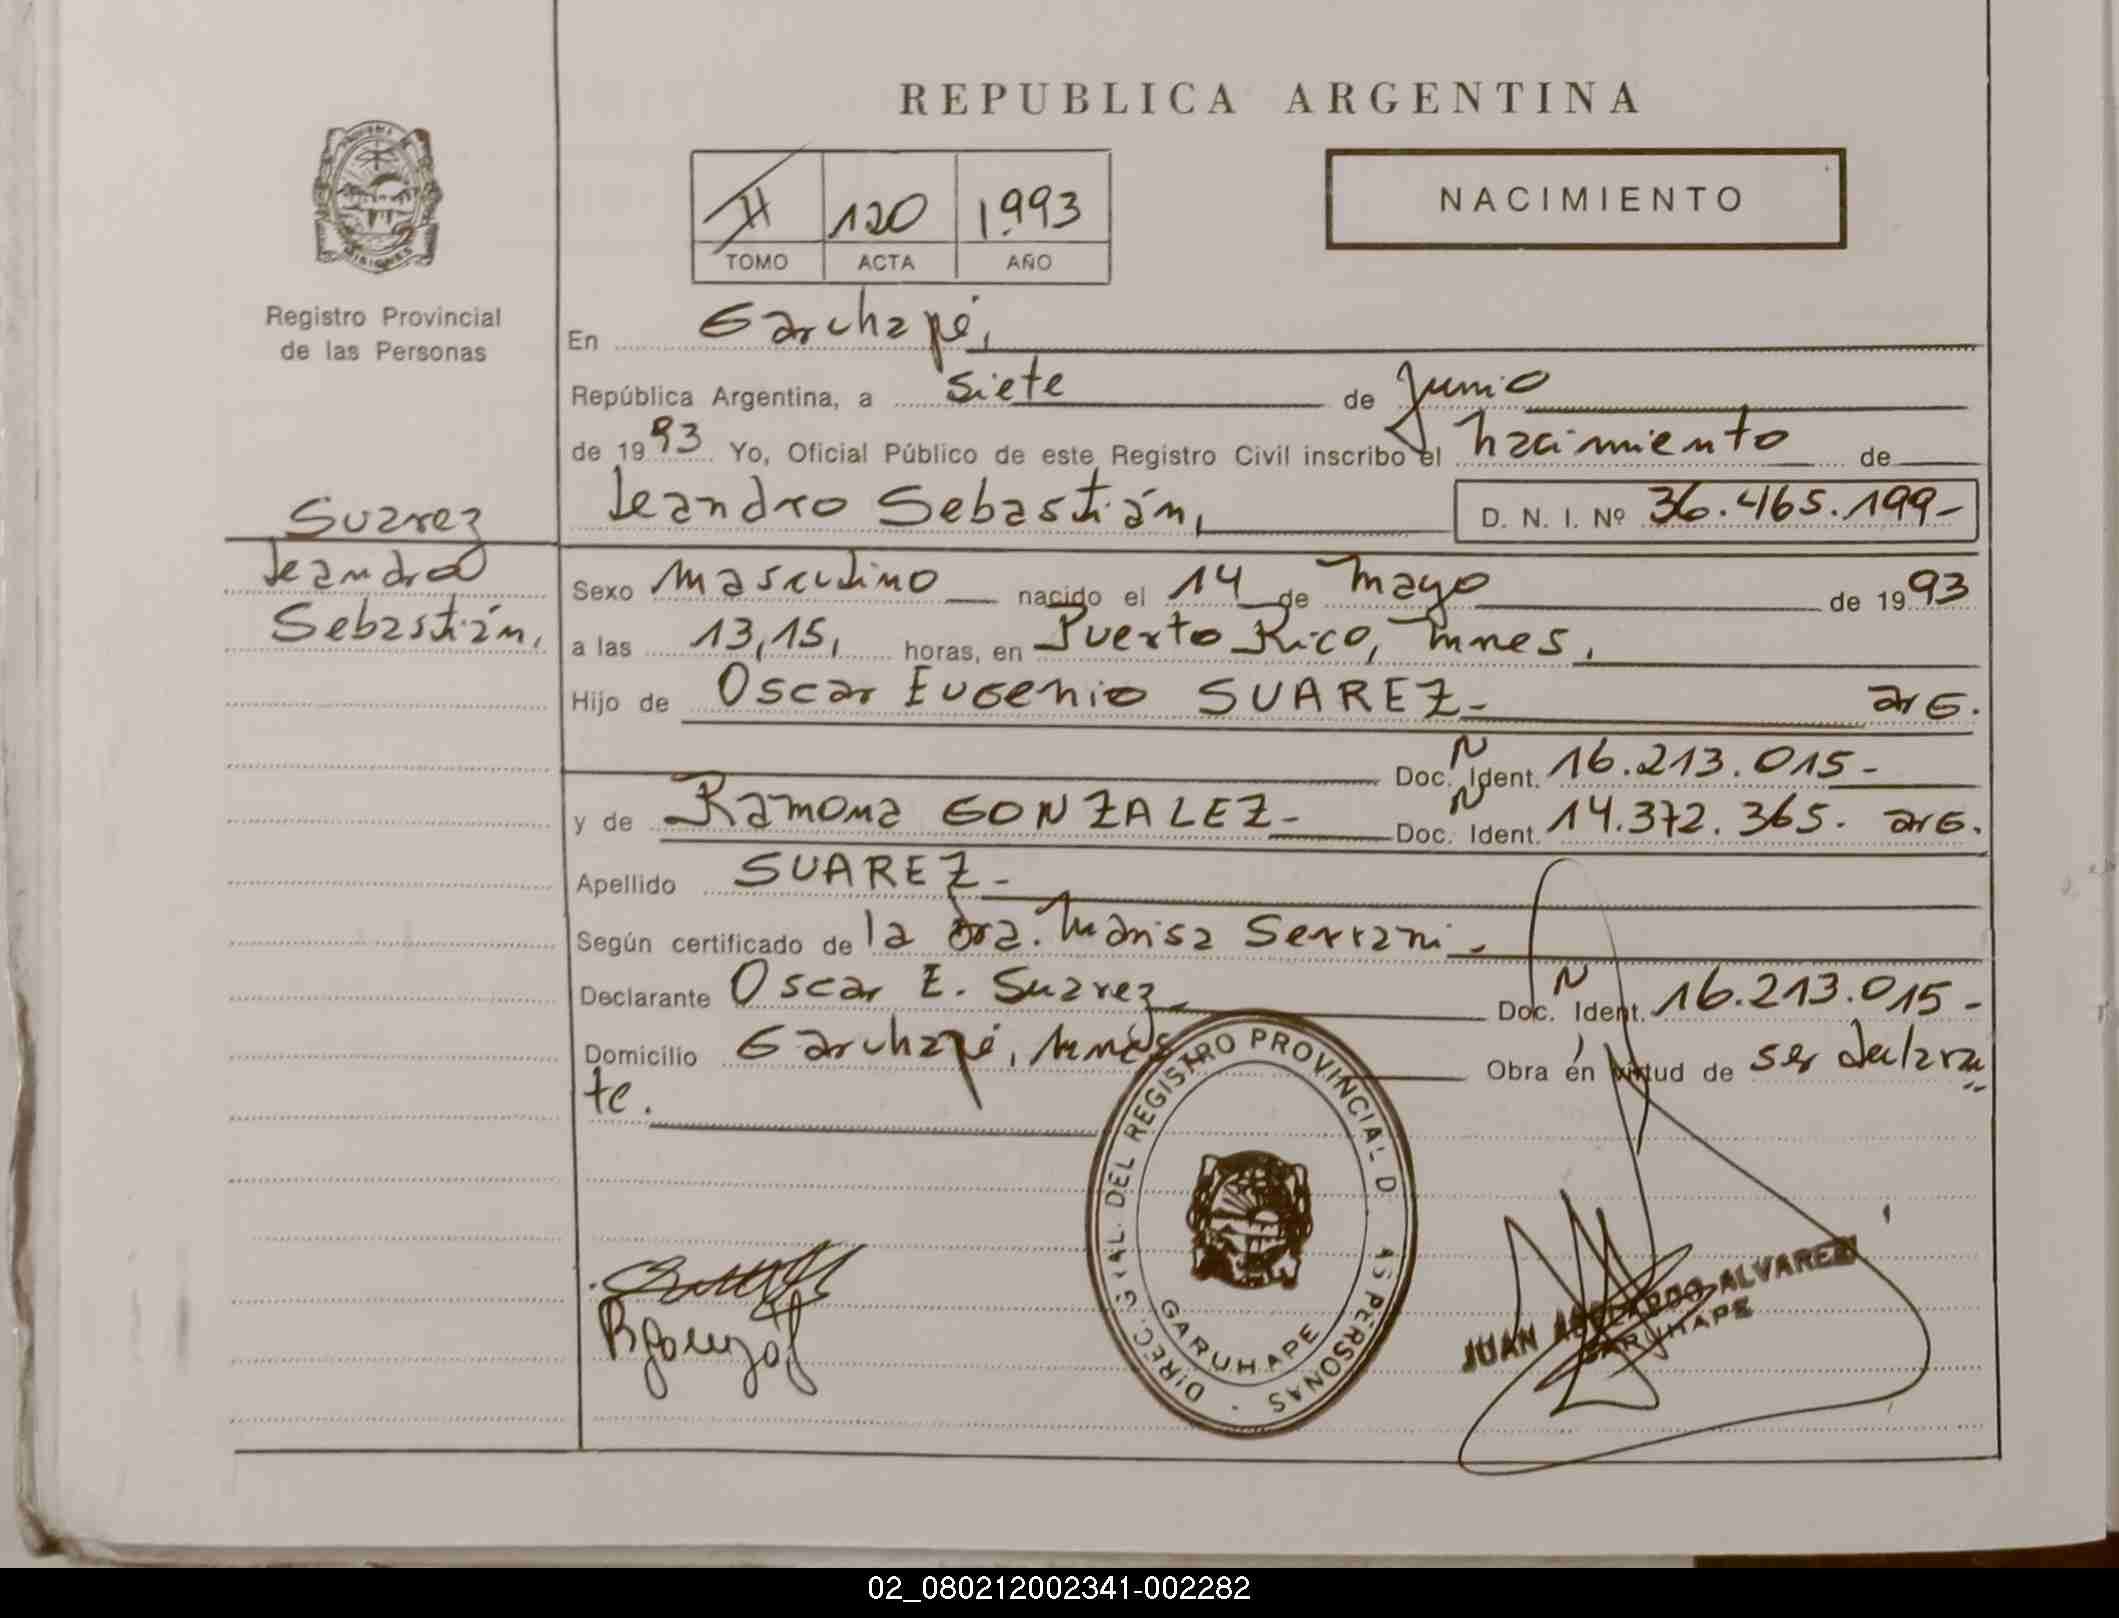 REPUBLICA ARGENTINA
NACIMIENTO
II 120 1.993
TOMO ACTA AÑO
Registro Provincial
de las Personas
En Garuhapé,
República Argentina, a siete de Junio
de 1993 Yo, Oficial Público de este Registro Civil inscribo el nacimiento de
Leandro Sebastián, D. N. I. Nº 36.465.199-
Suarez
Leandro
Sebastián,
Sexo masculino nacido el 14 de mayo de 1993
a las 13,15, horas, en Puerto Rico, mnes,
Hijo de Oscar Eugenio SUAREZ- arg.
Doc. N Ident. 16.213.015-
y de Ramona GONZALEZ- Doc. N Ident. 14.372.365. arg.
Apellido SUAREZ-
Según certificado de la Dra. Marisa Serrani-
Declarante Oscar E. Suarez Doc. N Ident. 16.213.015-
Domicilio Garuhapé, mnes Obra en virtud de ser declaran
te.
DIREC. GRAL. DEL REGISTRO PROVINCIAL D AS PERSONAS
GARUHAPE
JUAN ALVAREZ
GARUHAPE
02_080212002341-002282